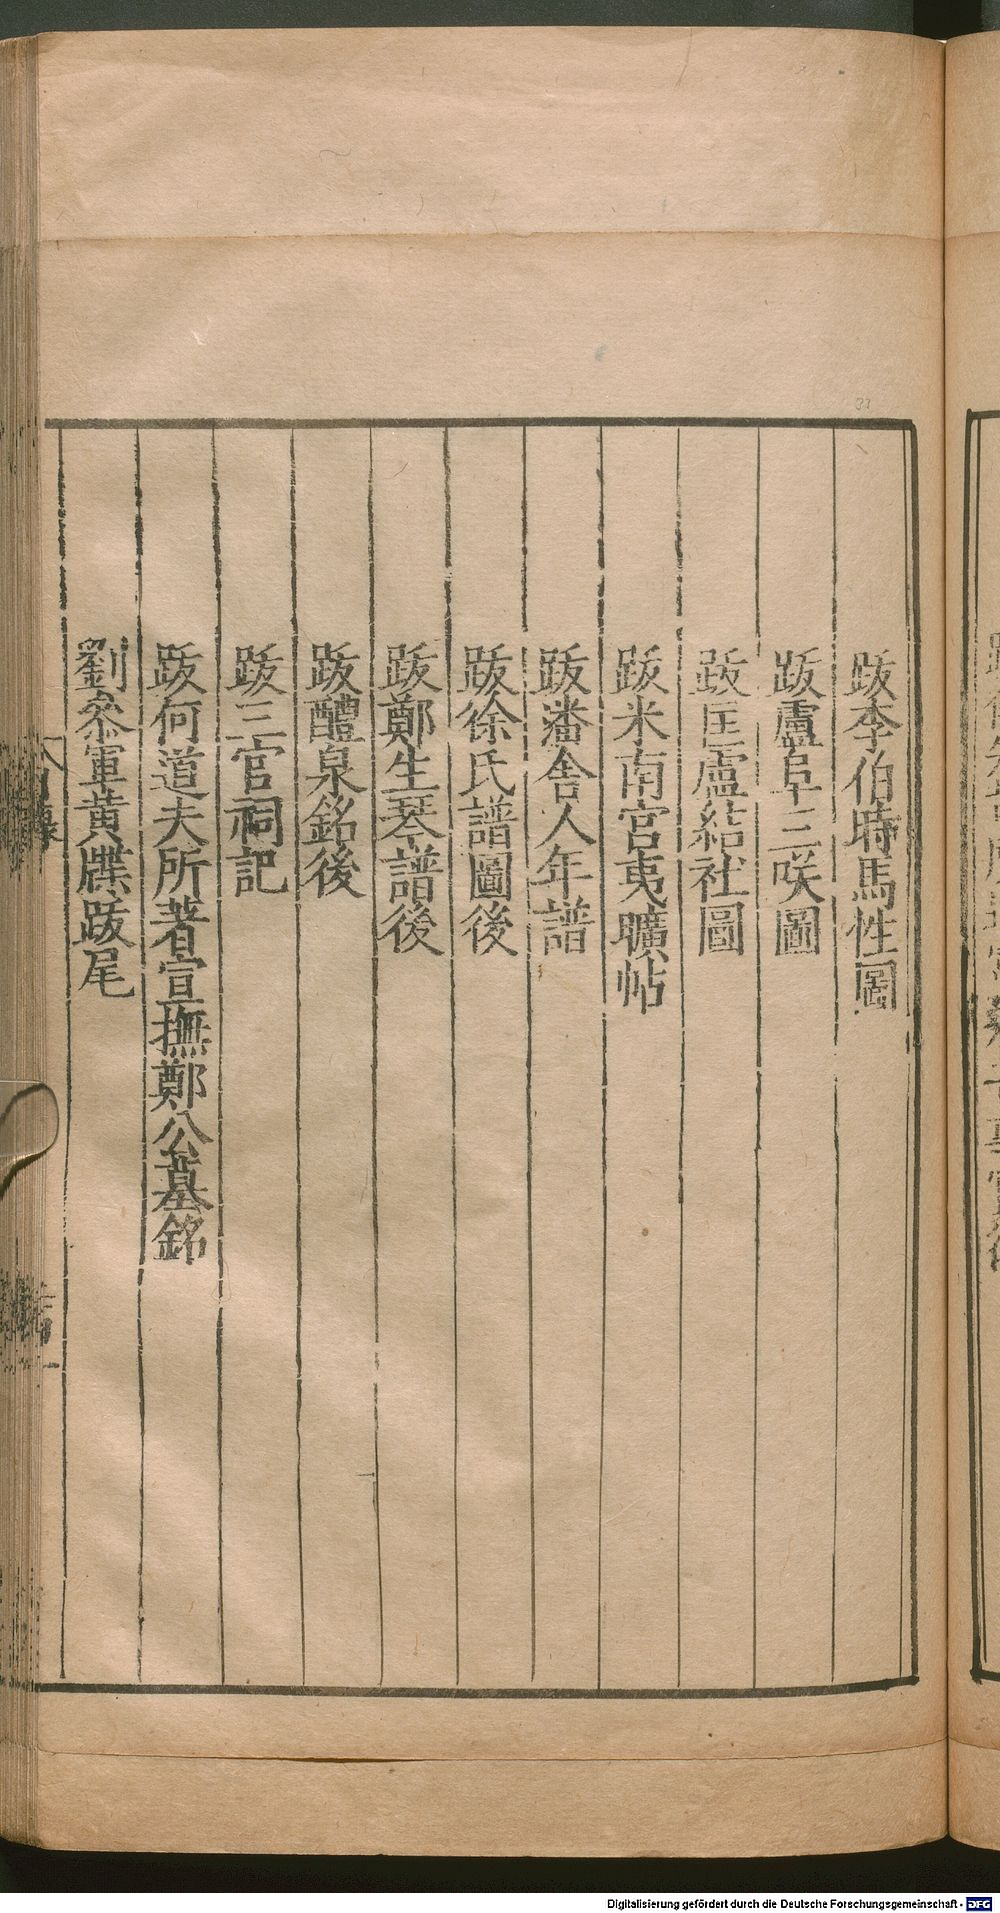 跋李伯時馬性圖
跋盧阜三咲圖
跋匡廬結社圖
跋米南宮夷曠帖
跋潘舍人年譜
跋徐氏譜圖後
跋鄭生琴譜後
跋醴泉銘後
跋三官祠記
跋何道夫所著宣撫鄭公墓銘
劉叅軍黄牒跋尾
Digitalisierung gefördert durch die Deutsche Forschungsgemeinschaft - DFG